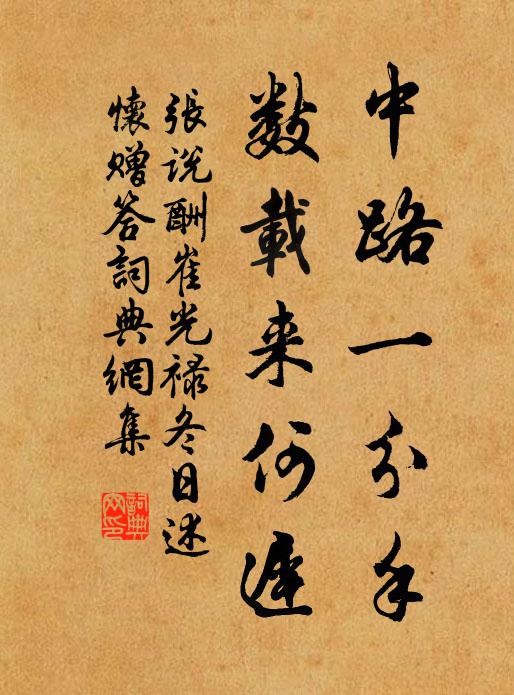 中路一分手
数載来何遲
張说酬崔光禄冬日述
懷贈答詞典網集
詞典
网印